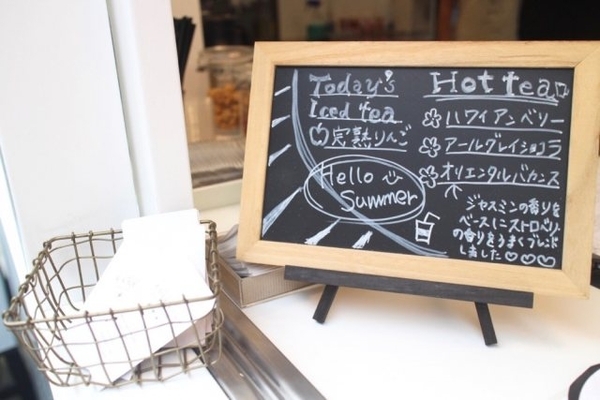 Today's
Iced tea
完熟りんご
Hello
Summer
Hot tea
ハワイアンベリー
アールグレイショコラ
オリエンタルバカンス
ジャスミンの香りを
ベースにストロベリー
の香りをうまくブレンド
しました♡♡♡